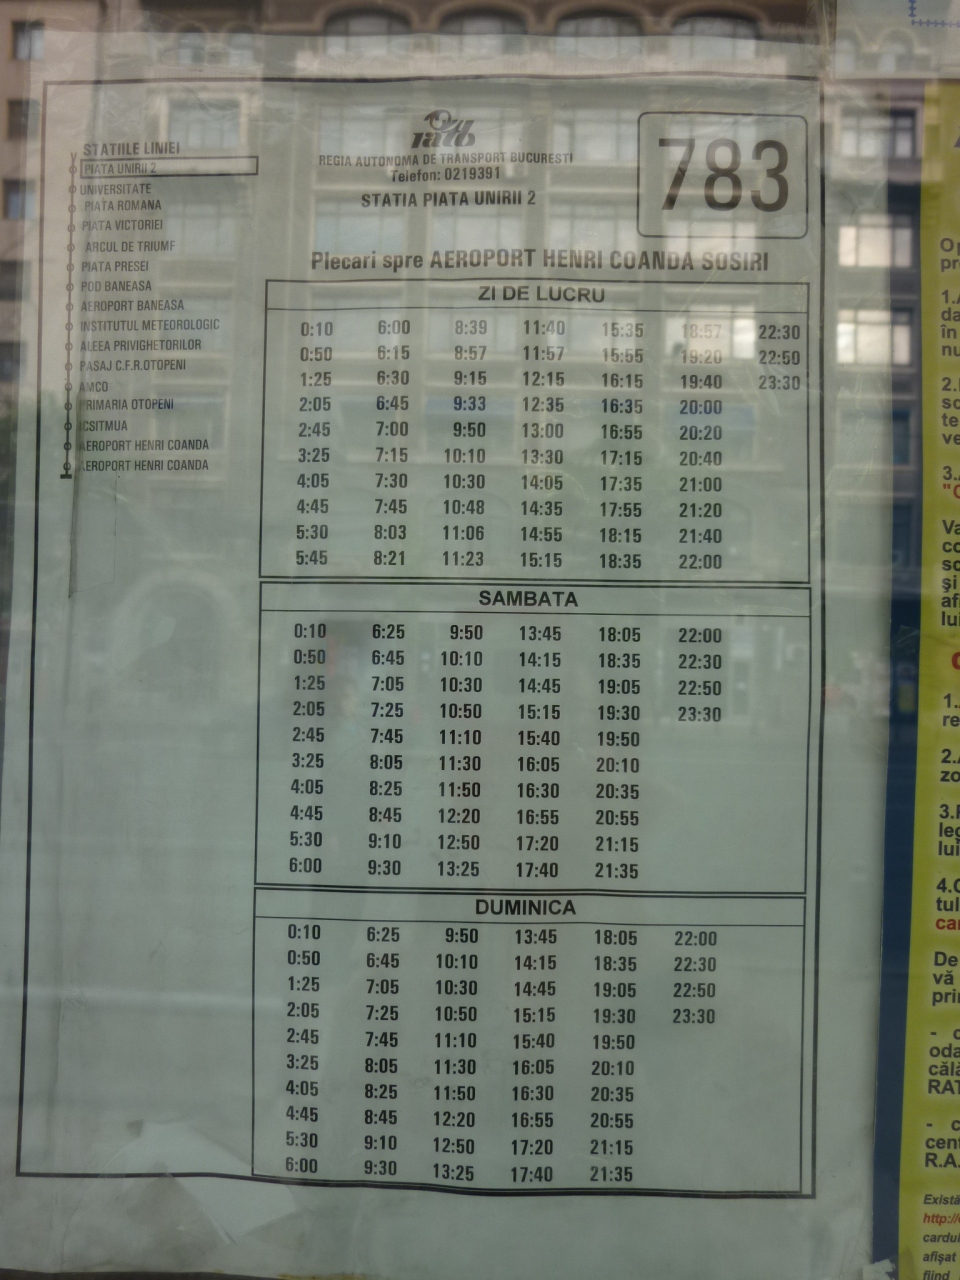 STATIILE LINIEI
PIATA UNIRII 2
UNIVERSITATE
PIATA ROMANA
PIATA VICTORIEI
ARCUL DE TRIUMF
PIATA PRESEI
POD BANEASA
AEROPORT BANEASA
INSTITUTUL METEOROLOGIC
ALEEA PRIVIGHETORILOR
PASAJ C.F.R.OTOPENI
AMCO
PRIMARIA OTOPENI
ICSITMUA
AEROPORT HENRI COANDA
AEROPORT HENRI COANDA
ratb
REGIA AUTONOMA DE TRANSPORT BUCURESTI
Telefon: 0219391
STATIA PIATA UNIRII 2
783
Plecari spre AEROPORT HENRI COANDA SOSIRI
ZI DE LUCRU
0:10 6:00 8:39 11:40 15:35 18:57 22:30
0:50 6:15 8:57 11:57 15:55 19:20 22:50
1:25 6:30 9:15 12:15 16:15 19:40 23:30
2:05 6:45 9:33 12:35 16:35 20:00
2:45 7:00 9:50 13:00 16:55 20:20
3:25 7:15 10:10 13:30 17:15 20:40
4:05 7:30 10:30 14:05 17:35 21:00
4:45 7:45 10:48 14:35 17:55 21:20
5:30 8:03 11:06 14:55 18:15 21:40
5:45 8:21 11:23 15:15 18:35 22:00
SAMBATA
0:10 6:25 9:50 13:45 18:05 22:00
0:50 6:45 10:10 14:15 18:35 22:30
1:25 7:05 10:30 14:45 19:05 22:50
2:05 7:25 10:50 15:15 19:30 23:30
2:45 7:45 11:10 15:40 19:50
3:25 8:05 11:30 16:05 20:10
4:05 8:25 11:50 16:30 20:35
4:45 8:45 12:20 16:55 20:55
5:30 9:10 12:50 17:20 21:15
6:00 9:30 13:25 17:40 21:35
DUMINICA
0:10 6:25 9:50 13:45 18:05 22:00
0:50 6:45 10:10 14:15 18:35 22:30
1:25 7:05 10:30 14:45 19:05 22:50
2:05 7:25 10:50 15:15 19:30 23:30
2:45 7:45 11:10 15:40 19:50
3:25 8:05 11:30 16:05 20:10
4:05 8:25 11:50 16:30 20:35
4:45 8:45 12:20 16:55 20:55
5:30 9:10 12:50 17:20 21:15
6:00 9:30 13:25 17:40 21:35
1.
în
2.
3.
şi
1.
2.
3.
4.
De
vă
-
-
R.A.
Există
afişat
fiind